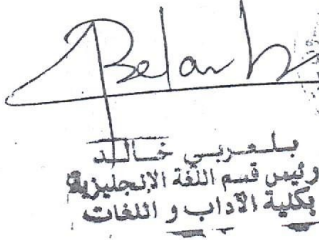 Belarbi
بلعربي خالد
رئيس قسم اللغة الإنجليزية
بكلية الآداب و اللغات